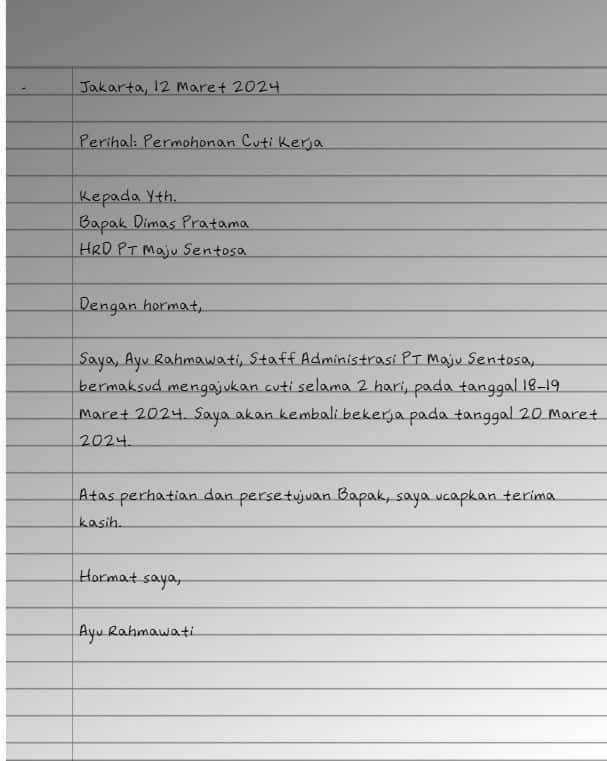 Jakarta, 12 Maret 2024
Perihal: Permohonan Cuti Kerja
Kepada Yth.
Bapak Dimas Pratama
HRD PT Maju Sentosa
Dengan hormat,
Saya, Ayu Rahmawati, Staff Administrasi PT Maju Sentosa,
bermaksud mengajukan cuti selama 2 hari, pada tanggal 18-19
Maret 2024. Saya akan kembali bekerja pada tanggal 20 Maret
2024.
Atas perhatian dan persetujuan Bapak, saya ucapkan terima
kasih.
Hormat saya,
Ayu Rahmawati